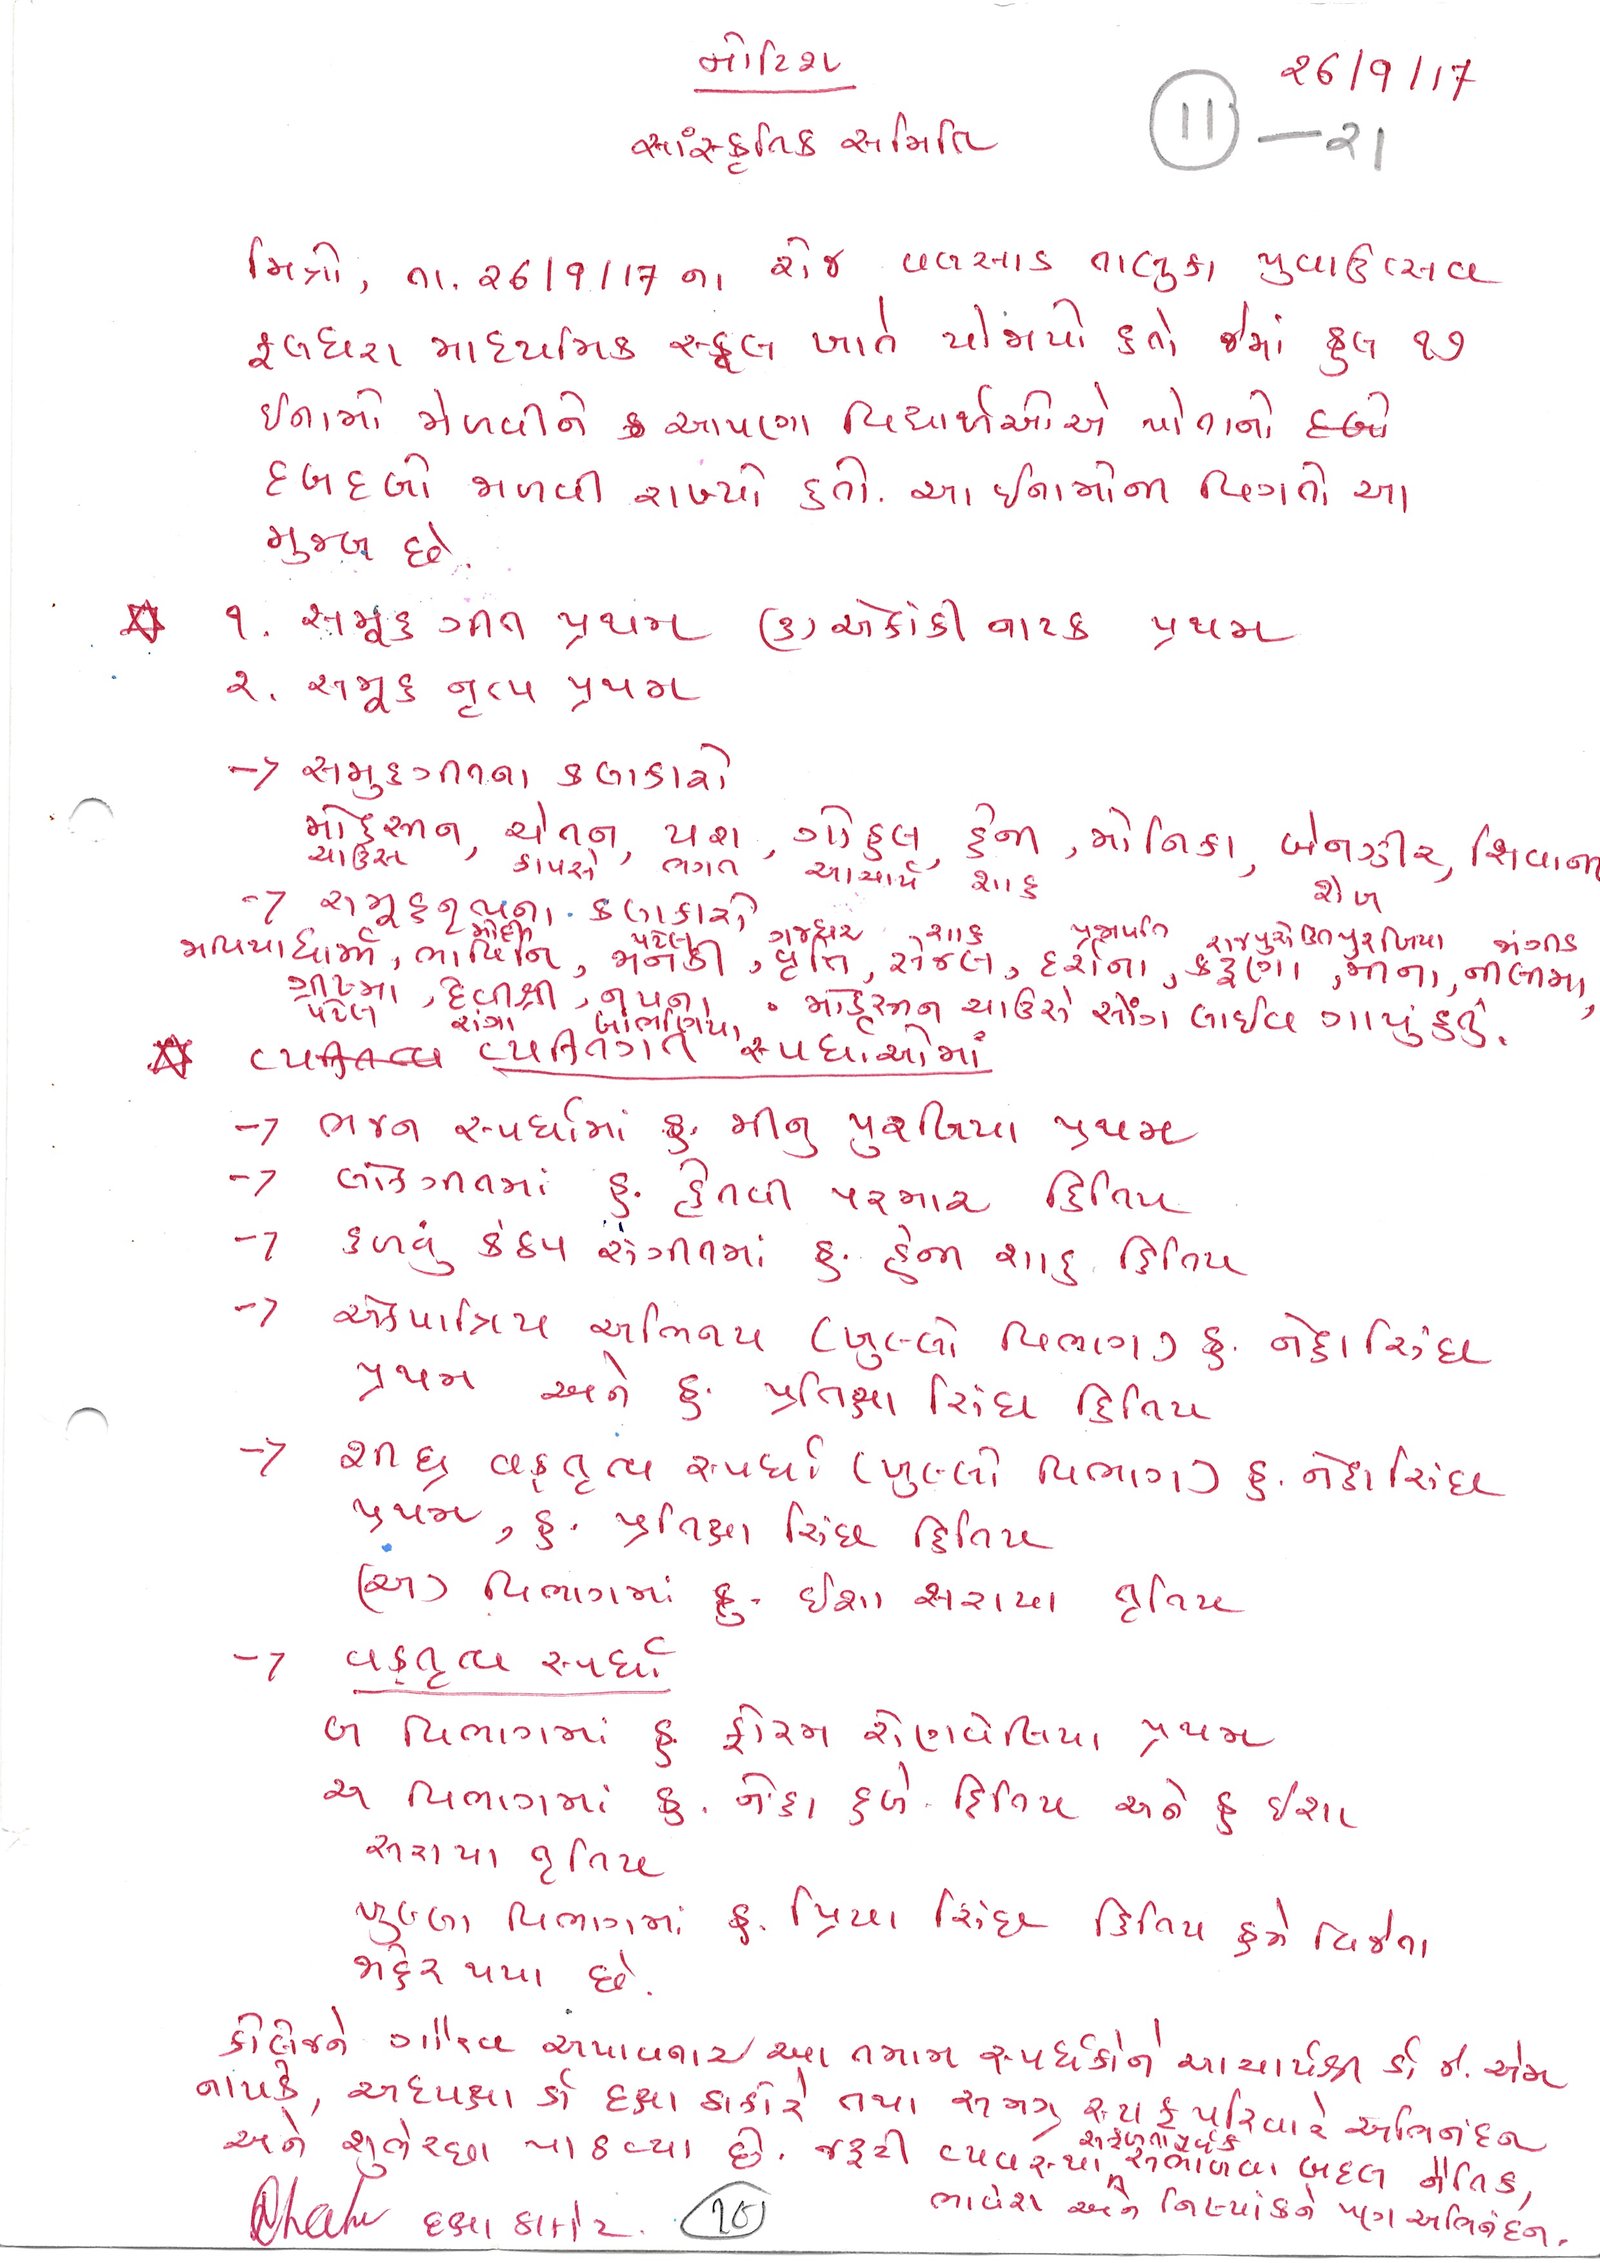 નોટિશ
26/9/17
11 — 21
સાંસ્કૃતિક સમિતિ
મિત્રો, તા. 26/9/17 ના રોજ વલસાડ તાલુકા યુવાઉત્સવ
ફલધરા માધ્યમિક સ્કૂલ ખાતે યોજાયો હતો જેમાં કુલ ૧૭
ઈનામો મેળવીને આપણા વિદ્યાર્થીઓએ પોતાનો દબો
દબદબો જાળવી રાખ્યો હતો. આ ઈનામોની વિગતો આ
મુજબ છે.
૧. સમૂહ ગીત પ્રથમ (૩) એકાંકી નાટક પ્રથમ
૨. સમૂહ નૃત્ય પ્રથમ
→ સમુહગીતના કલાકારો
મોહસીન, ચેતન, યશ, ગોકુલ, હેની, મોનિકા, બેનઝીર, શિવાની
ચાઉસ કાપસે ભગત આચાર્ય શાહ શેખ
→ સમૂહનૃત્યના કલાકારો
મોદી પટેલ ગજધર શાહ પ્રજાપતિ રાજપુરોહિત પુરબિયા
ભાવિનિ, જાનકી, ધૃતિ, સેજલ, દર્શના, કરૂણા, મીના, નીલમા,
ગ્રીષ્મા, દેવીશ્રી, નયના. મોહસીન ચાઉસે સોંગ લાઈવ ગાયું હતું.
પટેલ
વ્યક્તિગત સ્પર્ધાઓમાં
→ ભજન સ્પર્ધામાં કુ. મીનુ પુરબિયા પ્રથમ
→ લોકગીતમાં કુ. હેતવી પરમાર દ્વિતિય
→ હળવું કંઠય સંગીતમાં કુ. હેની શાહ દ્વિતિય
→ એકપાત્રિય અભિનય (ખુલ્લો વિભાગ) કુ. નેહા સિંઘ
પ્રથમ અને કુ. પ્રતિક્ષા સિંઘ દ્વિતિય
→ શીઘ્ર વક્તૃત્વ સ્પર્ધા (ખુલ્લો વિભાગ) કુ. નેહા સિંઘ
પ્રથમ, કુ. પ્રતિક્ષા સિંઘ દ્વિતિય
(અ) વિભાગમાં કુ. ઈશા સરાયા તૃતિય
→ વક્તૃત્વ સ્પર્ધા
બ વિભાગમાં કુ. ફોરમ રોણવેલિયા પ્રથમ
અ વિભાગમાં કુ. નેહા દુબે દ્વિતિય અને કુ ઈશા
સરાયા તૃતિય
ખુલ્લા વિભાગમાં કુ. પ્રિયા સિંઘ દ્વિતિય ક્રમે વિજેતા
જાહેર થયા છે.
કોલેજને ગૌરવ અપાવનાર આ તમામ સ્પર્ધકોને આચાર્યશ્રી ર્ડા જે. એમ
નાયકે, અધ્યક્ષા ર્ડા દક્ષા ઠાકોરે તથા સમગ્ર સ્ટાફ પરિવારે અભિનંદન
અને શુભેચ્છા પાઠવ્યા છે. જરૂરી વ્યવસ્થા સફળતાપૂર્વક સંભાળવા બદલ નૈતિક,
ભાવેશ અને નિલ્પાંકને પણ અભિનંદન.
દક્ષા ઠાકોર. 20